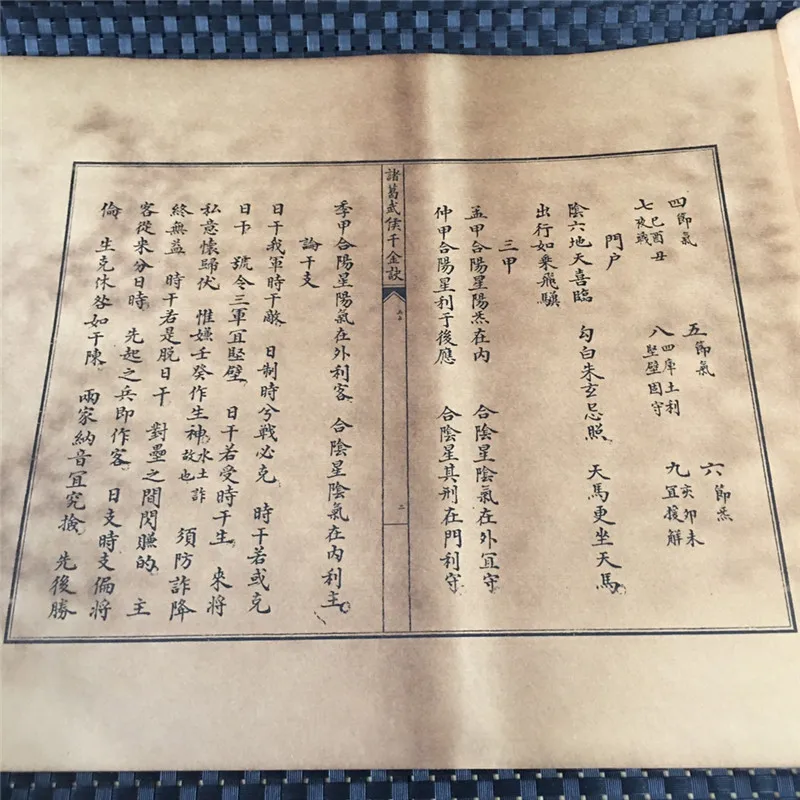 四節氣 五節氣 六節炁
七巳酉丑夜戰 八四庫土利堅壁固守 九亥卯未宜援解
門户
陰六地天喜臨 勾白朱玄忌照 天馬更坐天馬
出行如乘飛驥
三甲
孟甲合陽星陽炁在内 合陰星陰氣在外宜守
仲甲合陽星利于後應 合陰星其刑在門利守
諸葛武侯千金訣 二
季甲合陽星陽氣在外利客 合陰星陰氣在内利主
論干支
日干我軍時干敵 日制時兮戰必克 時干若或克
日干 號令三軍宜堅壁 日干若受時干生 來將
私意懷歸伏 惟嫌壬癸作生神水土詐故也 須防詐降
終無益 時干若是脱日干 對壘之間閃賺的 主
客從來分日時 先起之兵即作客 日支時支偏將
倫 生克休咎如干陳 兩家納音宜究撿 先後勝